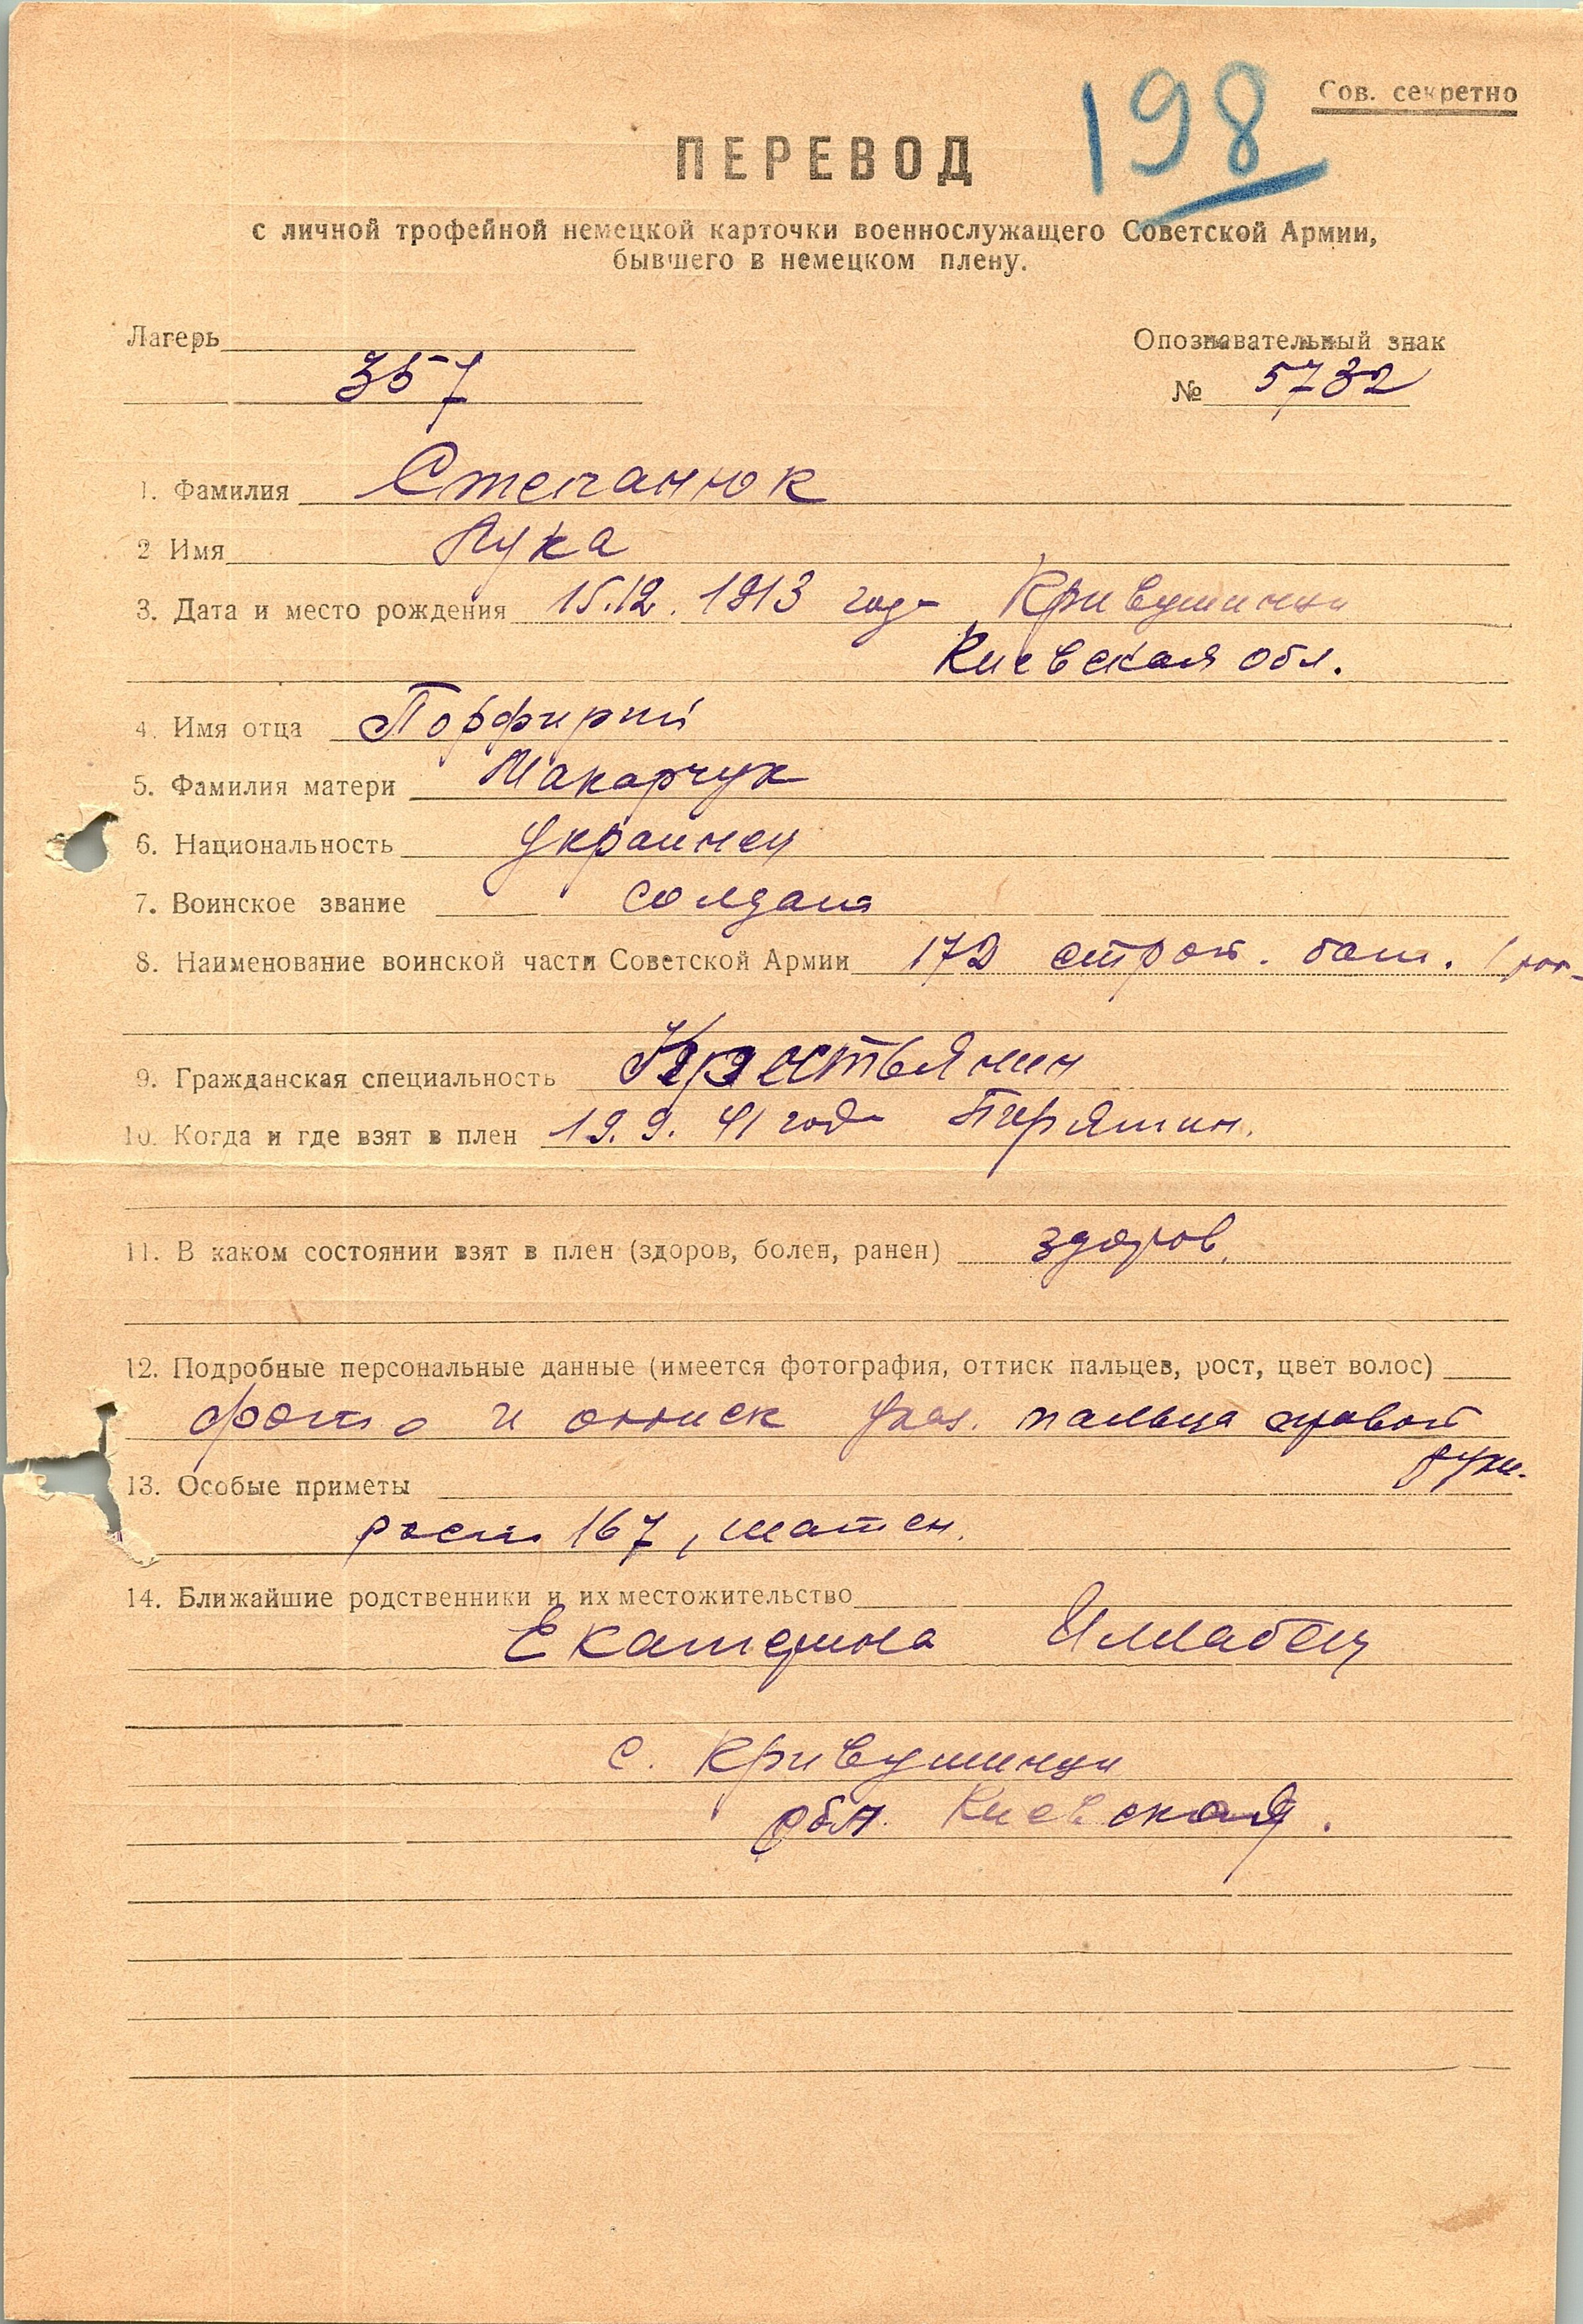 198
Сов. секретно
ПЕРЕВОД
с личной трофейной немецкой карточки военнослужащего Советской Армии,
бывшего в немецком плену.
Лагерь
Опознавательный знак
357
№ 5732
1. Фамилия Степанюк
2 Имя Лука
3. Дата и место рождения 15.12.1913 года Кривушинци
Киевская обл.
4. Имя отца Порфирий
5. Фамилия матери Макарчук
6. Национальность Украинец
7. Воинское звание солдат
8. Наименование воинской части Советской Армии 172 строт. бат. 1 рот
9. Гражданская специальность Крестьянин
10. Когда и где взят в плен 19.9.41 года Пирятин.
11. В каком состоянии взят в плен (здоров, болен, ранен) здоров.
12. Подробные персональные данные (имеется фотография, оттиск пальцев, рост, цвет волос)
фото и оттиск указ. пальца правой
руки.
13. Особые приметы
рост 167, шатен.
14. Ближайшие родственники и их местожительство
Екатерина
с. Кривушинци
обл. Киевская.